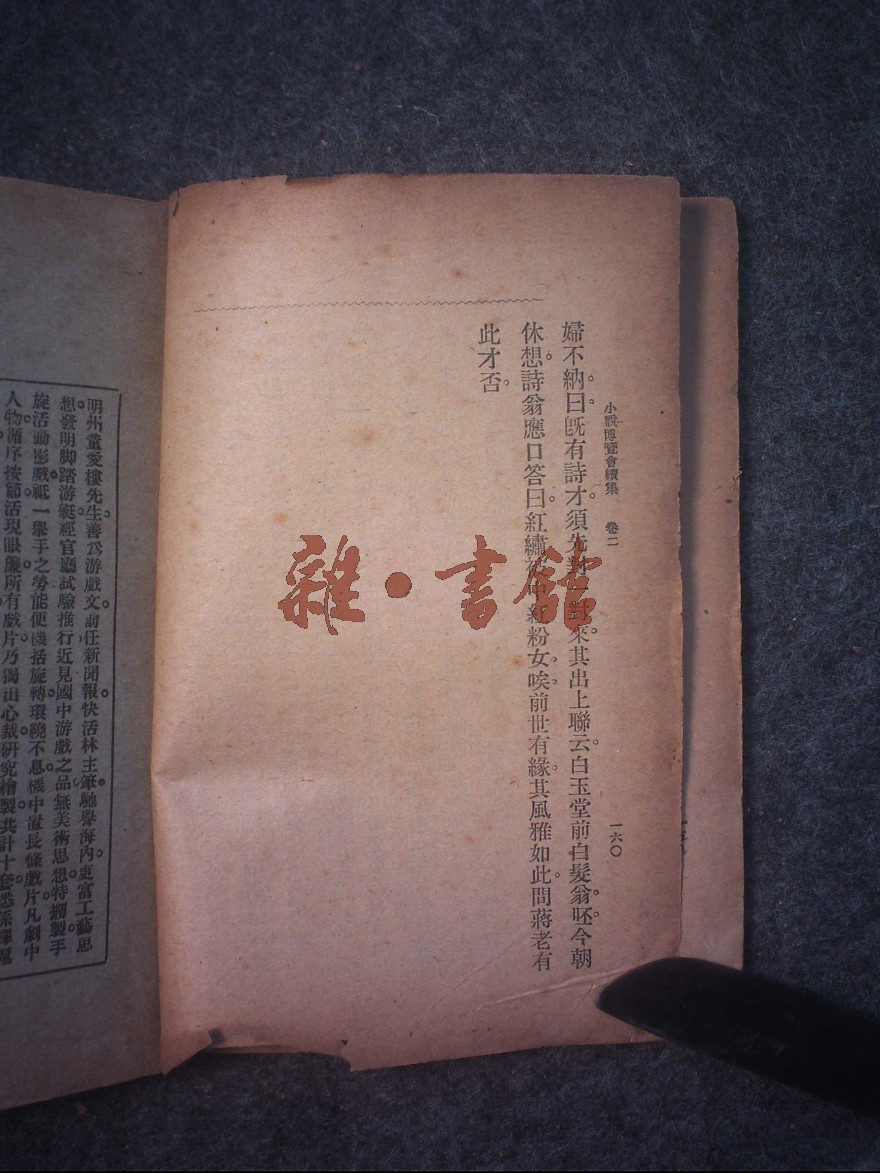 小說博覽會續集 卷二 一六〇
婦不納。曰。旣有詩才。須先對一對來。其出上聯云。白玉堂前白髮翁。呸。今朝
休想。詩翁應口答曰。紅繡被中紅粉女。唉。前世有緣。其風雅如此。問蔣老有
此才否。
明州童愛樓先生。善爲游戲文。前任新聞報快活林主筆。馳譽海內。更富工藝思
想。發明脚踏游艇。經官廳試驗推行。近見國中游戲之品。無美術思想。特擱製手
旋活動影戲。祗一舉手之勞。能使機括旋轉。環繞不息。機中置長條戲片。凡劇中
人物。循序按節。活現眼簾。所有戲片。乃獨出心裁。研究繪製。共計十套。悉係
雜·書館